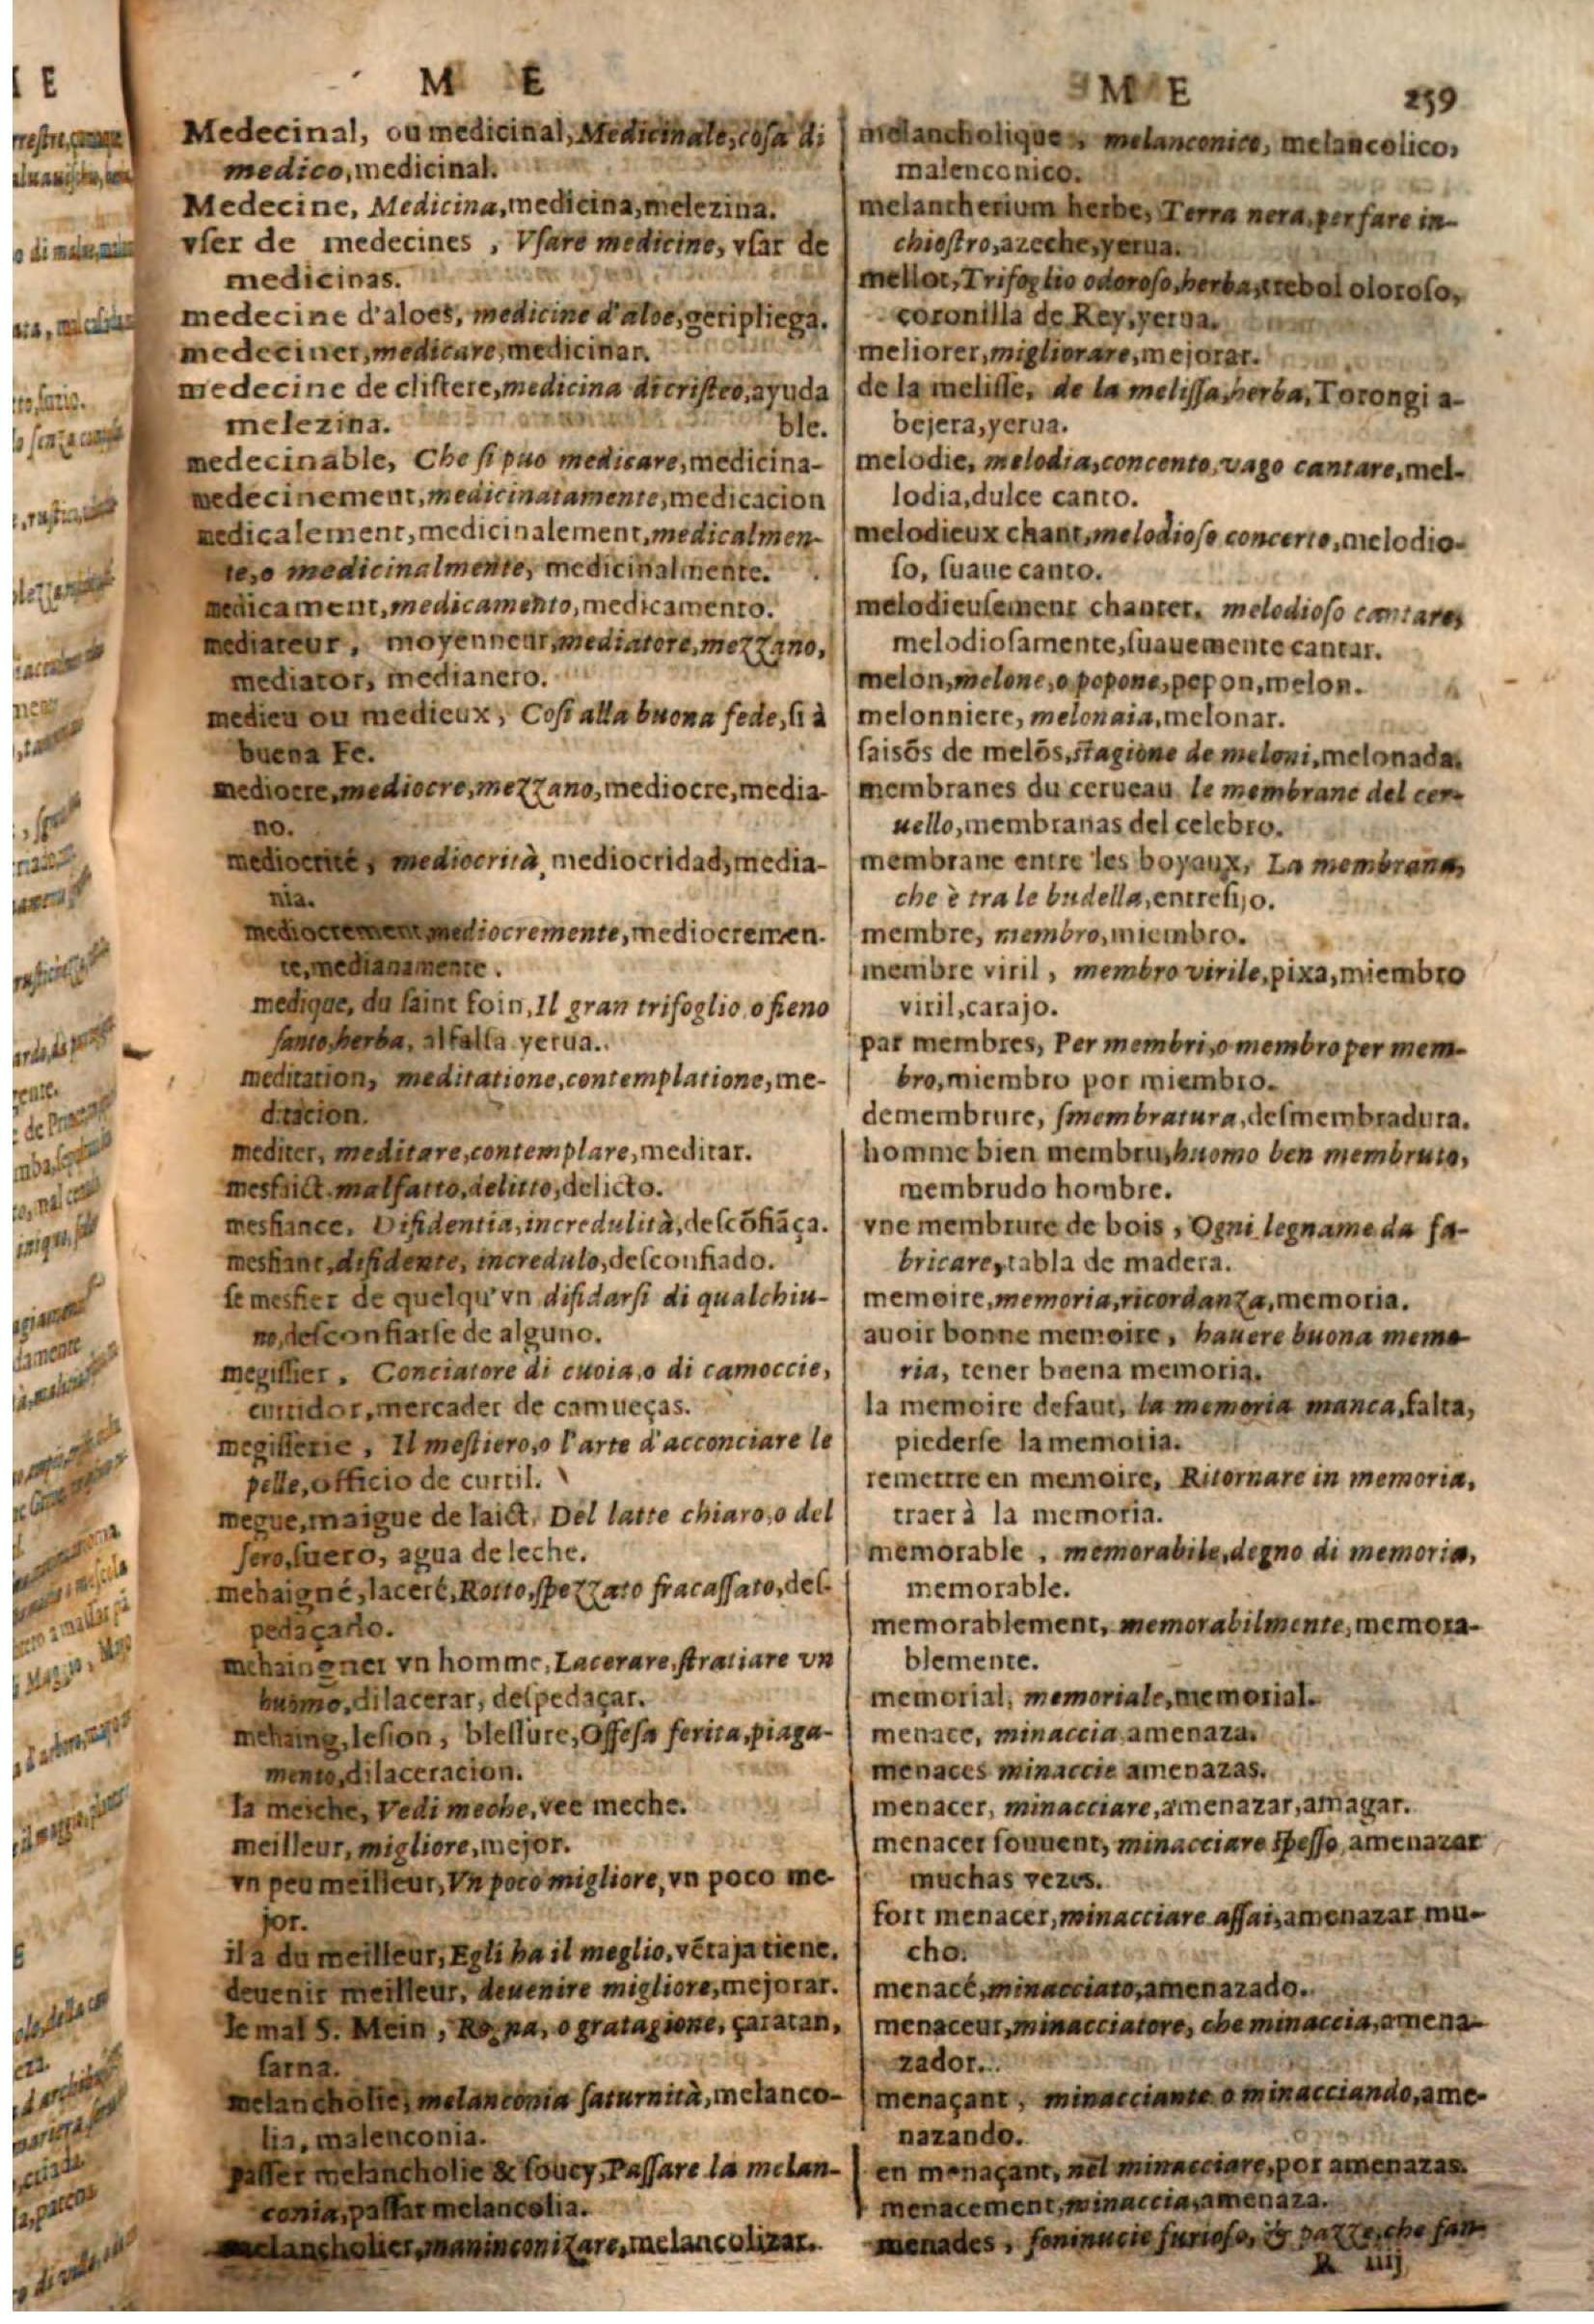 M E
Medecinal, ou medicinal, Medicinale, cosa di
medico, medicinal.
Medecine, Medicina, medicina, melezina.
vſer de medecines , Vſare medicine, vſar de
medicinas.
medecine d'aloes, medicine d'aloe, geripliega.
medeciner, medicare, medicinar.
medecine de cliſtere, medicina di criſteo, ayuda
melezina.
medecinable, Che ſi puo medicare, medicina-
ble.
medecinement, medicinatamente, medicacion
medicalement, medicinalement, medicalmen-
te, o medicinalmente, medicinalmente.
medicament, medicamento, medicamento.
mediateur , moyenneur, mediatore, mezzano,
mediator, medianero.
medieu ou medieux, Coſi alla buona fede, ſi à
buena Fe.
mediocre, mediocre, mezzano, mediocre, media-
no.
mediocrité , mediocrità, mediocridad, media-
nia.
mediocrement, mediocremente, mediocremen-
te, medianamente.
medique, du ſaint foin, Il gran trifoglio o fieno
ſanto, herba, alfalfa yerua.
meditation, meditatione, contemplatione, me-
ditacion.
mediter, meditare, contemplare, meditar.
mesfaict. malfatto, delitto, delicto.
mesfiance, Difidentia, incredulità, deſcõfiãça.
mesfiant, difidente, incredulo, deſconfiado.
ſe mesfier de quelqu'vn difidarſi di qualchiu-
no, deſconfiarſe de alguno.
megiſſier , Conciatore di cuoia, o di camoccie,
curtidor, mercader de camueças.
megiſſerie , Il meſtiero, o l'arte d'acconciare le
pelle, officio de curtil.
megue, maigue de laict, Del latte chiaro, o del
ſero, ſuero, agua de leche.
mehaigné, laceré, Rotto, ſpezzato fracaſſato, deſ-
pedaçado.
mehaingner vn homme, Lacerare, ſtratiare vn
huomo, dilacerar, deſpedaçar.
mehaing, leſion, bleſſure, Offeſa ferita, piaga-
mento, dilaceracion.
la meiche, Vedi meche, vee meche.
meilleur, migliore, mejor.
vn peu meilleur, Vn poco migliore, vn poco me-
jor.
il a du meilleur, Egli ha il meglio, vẽtaja tiene.
deuenir meilleur, deuenire migliore, mejorar.
le mal S. Mein , Rogna, o gratagione, çaratan,
ſarna.
melancholie, melanconia ſaturnità, melanco-
lia, malenconia.
paſſer melancholie & ſoucy, Paſſare la melan-
conia, paſſar melancolia.
melancholier, maninconizare, melancolizar.
M E 259
melancholique , melanconico, melancolico,
malenconico.
melantherium herbe, Terra nera, per fare in-
chioſtro, azeche, yerua.
mellot, Trifoglio odoroſo, herba, trebol oloroſo,
coronilla de Rey, yerua.
meliorer, migliorare, mejorar.
de la meliſſe, de la meliſſa, herba, Torongi a-
bejera, yerua.
melodie, melodia, concento, vago cantare, mel-
lodia, dulce canto.
melodieux chant, melodioſo concerto, melodio-
ſo, ſuaue canto.
melodieuſement chanter. melodioſo cantare,
melodioſamente, ſuauemente cantar.
melon, melone, o popone, pepon, melon.
melonniere, melonaia, melonar.
ſaisõs de melõs, ſtagione de meloni, melonada.
membranes du cerueau le membrane del cer-
uello, membranas del celebro.
membrane entre les boyaux, La membrana,
che è tra le budella, entreſijo.
membre, membro, miembro.
membre viril , membro virile, pixa, miembro
viril, carajo.
par membres, Per membri, o membro per mem-
bro, miembro por miembro.
demembrure, ſmembratura, deſmembradura.
homme bien membru, huomo ben membruto,
membrudo hombre.
vne membrure de bois , Ogni legname da fa-
bricare, tabla de madera.
memoire, memoria, ricordanza, memoria.
auoir bonne memoire , hauere buona memo
ria, tener buena memoria.
la memoire defaut, la memoria manca, falta,
piederſe la memoria.
remettre en memoire, Ritornare in memoria,
traer à la memoria.
memorable , memorabile, degno di memoria,
memorable.
memorablement, memorabilmente, memora-
blemente.
memorial, memoriale, memorial.
menace, minaccia amenaza.
menaces minaccie amenazas.
menacer, minacciare, amenazar, amagar.
menacer ſouuent, minacciare ſpeſſo, amenazar
muchas vezes.
fort menacer, minacciare aſſai, amenazar mu-
cho.
menacé, minacciato, amenazado.
menaceur, minacciatore, che minaccia, amena-
zador.
menaçant , minacciante o minacciando, ame-
nazando.
en menaçant, nel minacciare, por amenazas.
menacement, minaccia, amenaza.
menades , feminucie furioſe, & pazze, che ſan-
R iiij